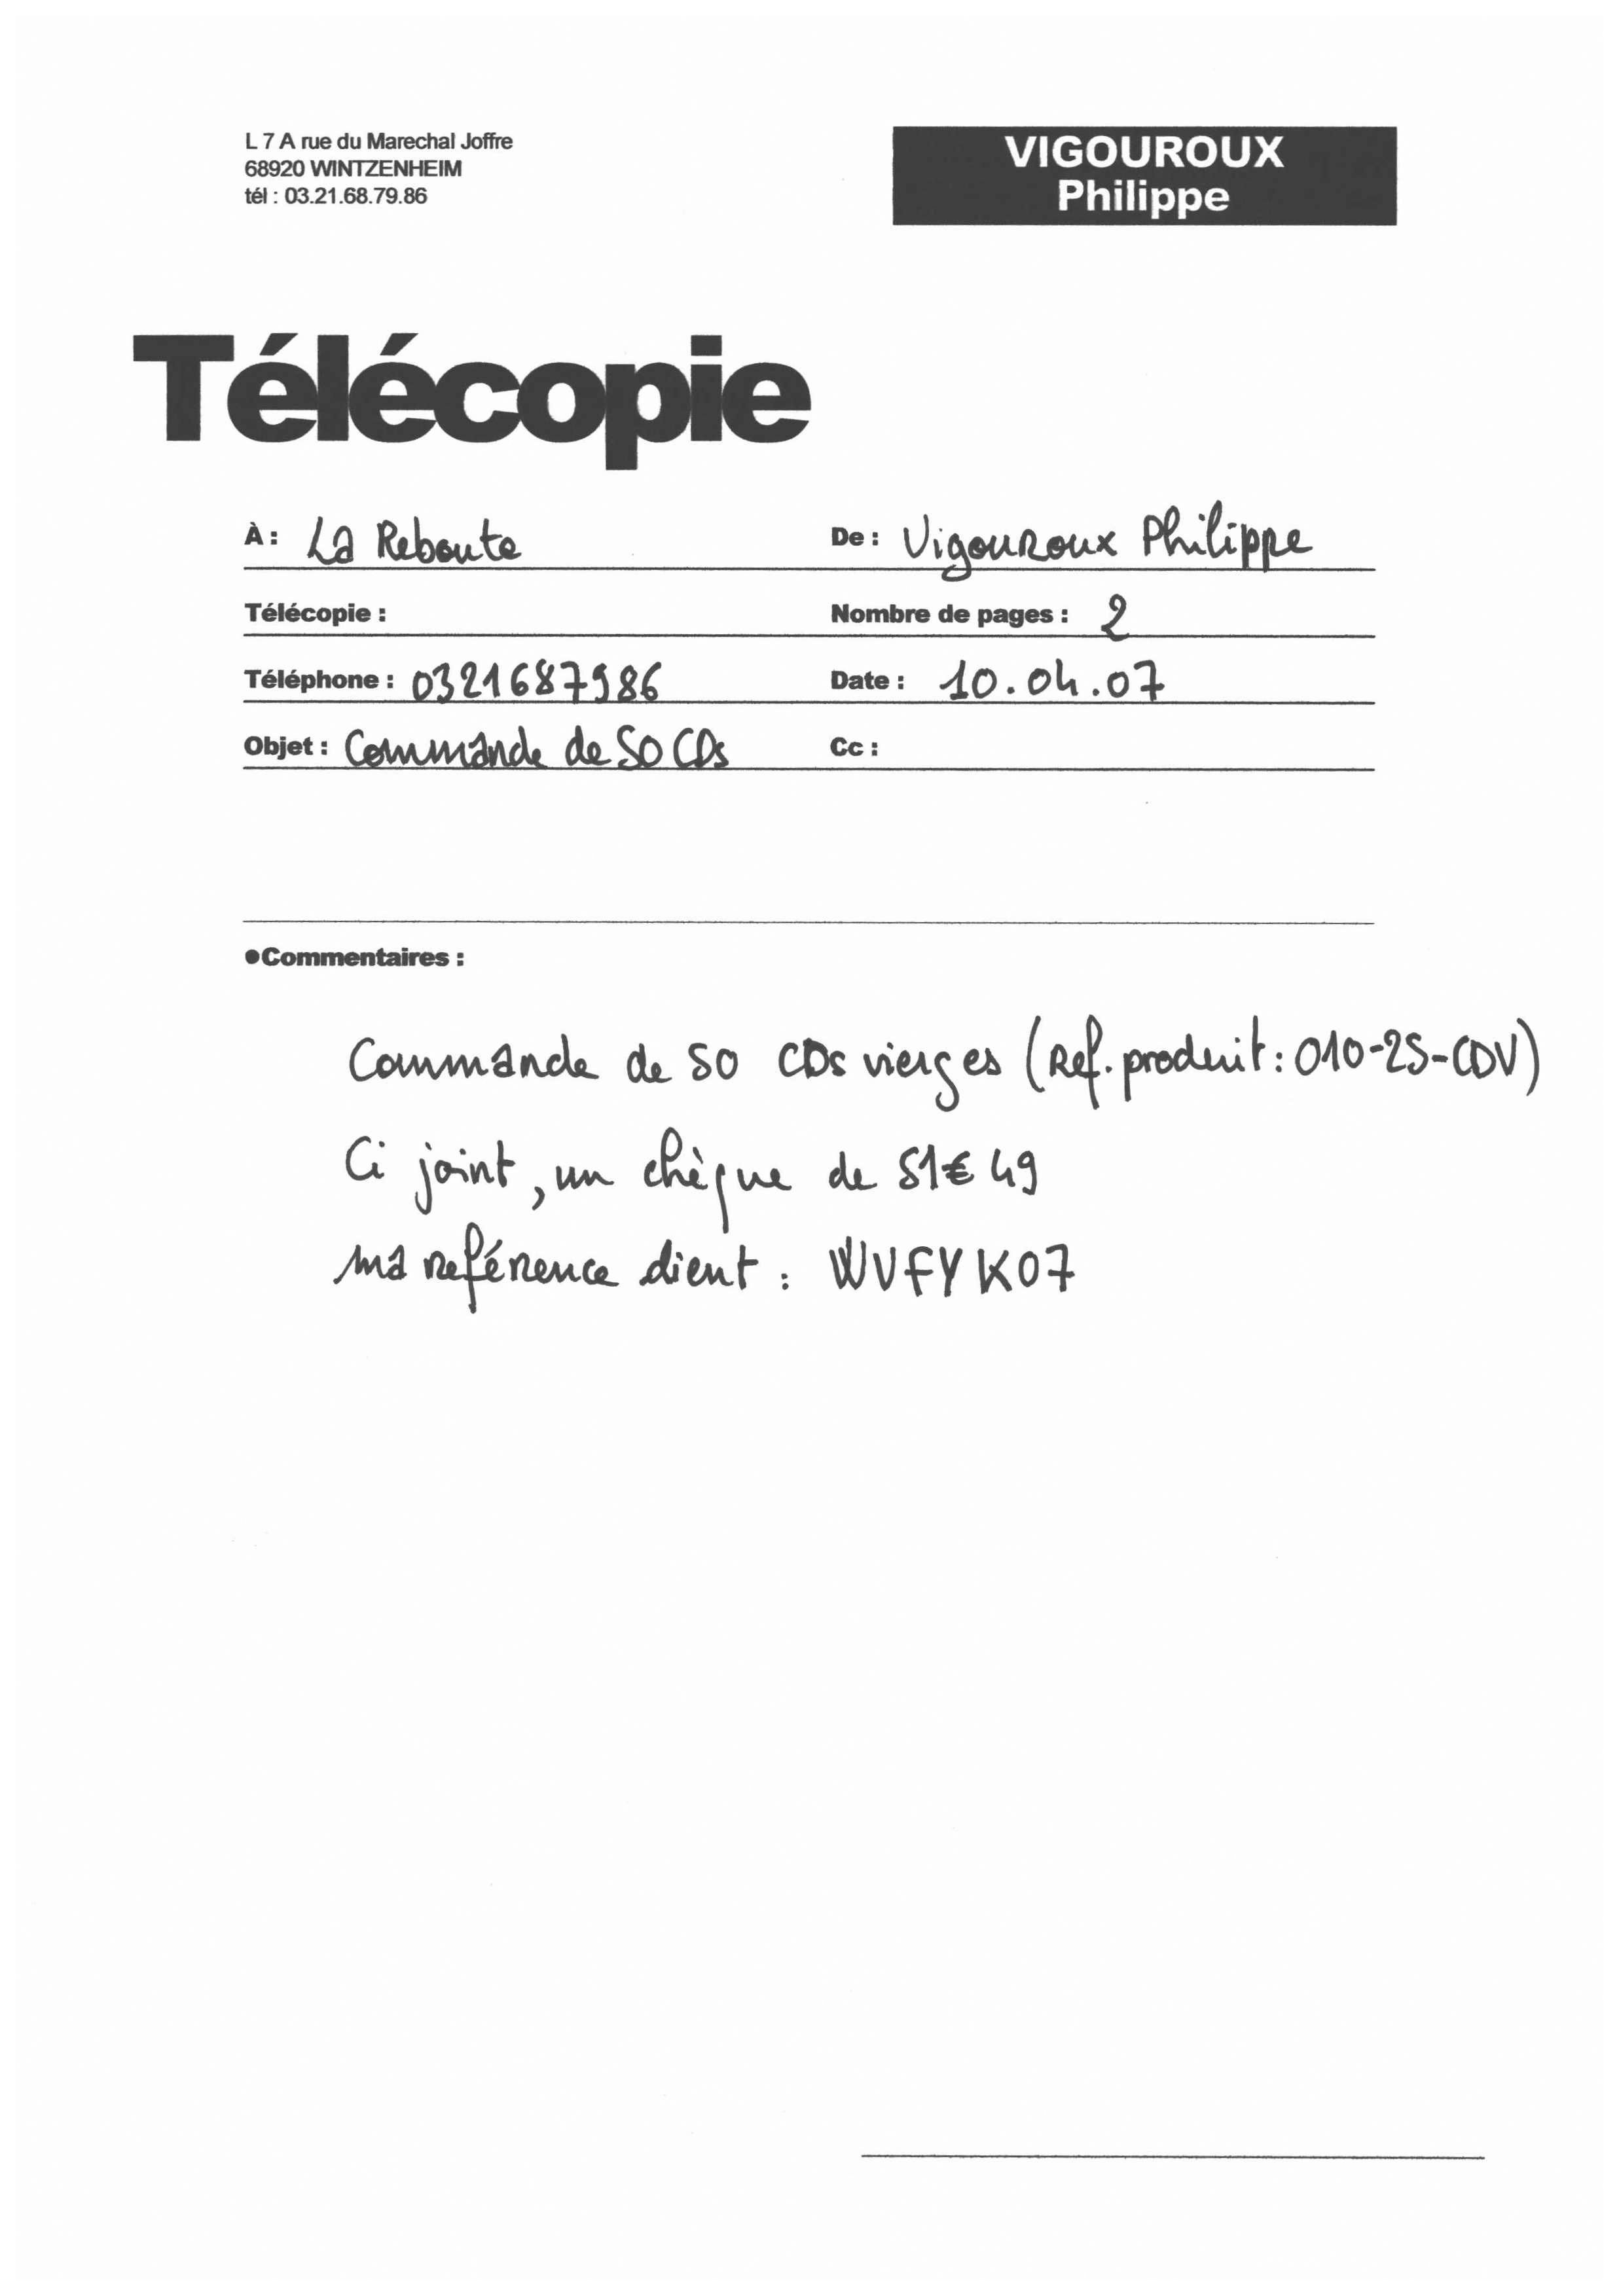 L 7 A rue du Marechal Joffre
68920 WINTZENHEIM
tél : 03.21.68.79.86
VIGOUROUX
Philippe
Télécopie
À : La Reboute
De : Vigouroux Philippe
Télécopie :
Nombre de pages : 2
Téléphone : 0321687986
Date : 10.04.07
Objet : Commande de 50 CDs
Cc :
●Commentaires :
Commande de 50 CDs vierges (Ref. produit : 010-25-CDV)
Ci joint, un chèque de 51€49
Ma référence client : WVFYK07